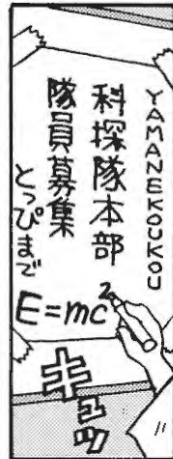 YAMANEKOUKOU
科探隊本部
隊員募集
とっぴまで
E=mc²
キュッ